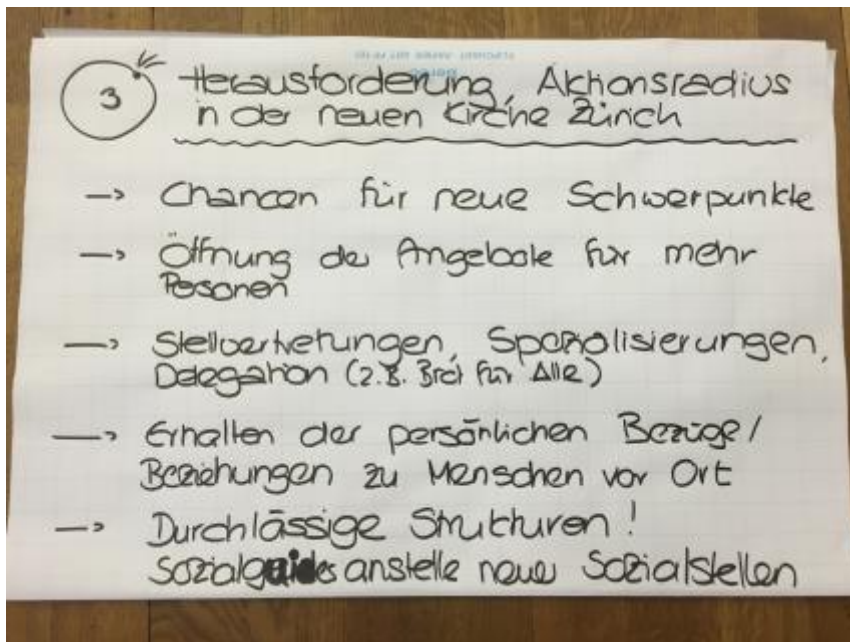 3 Herausforderung, Aktionsradius
in der neuen Kirche Zürich
→ Chancen für neue Schwerpunkte
→ Öffnung der Angebote für mehr
Personen
→ Stellvertretungen, Spezialisierungen,
Delegation (z.B. Brot für Alle)
→ Erhalten der persönlichen Bezüge/
Beziehungen zu Menschen vor Ort
→ Durchlässige Strukturen!
Sozialguides anstelle neuer Sozialstellen